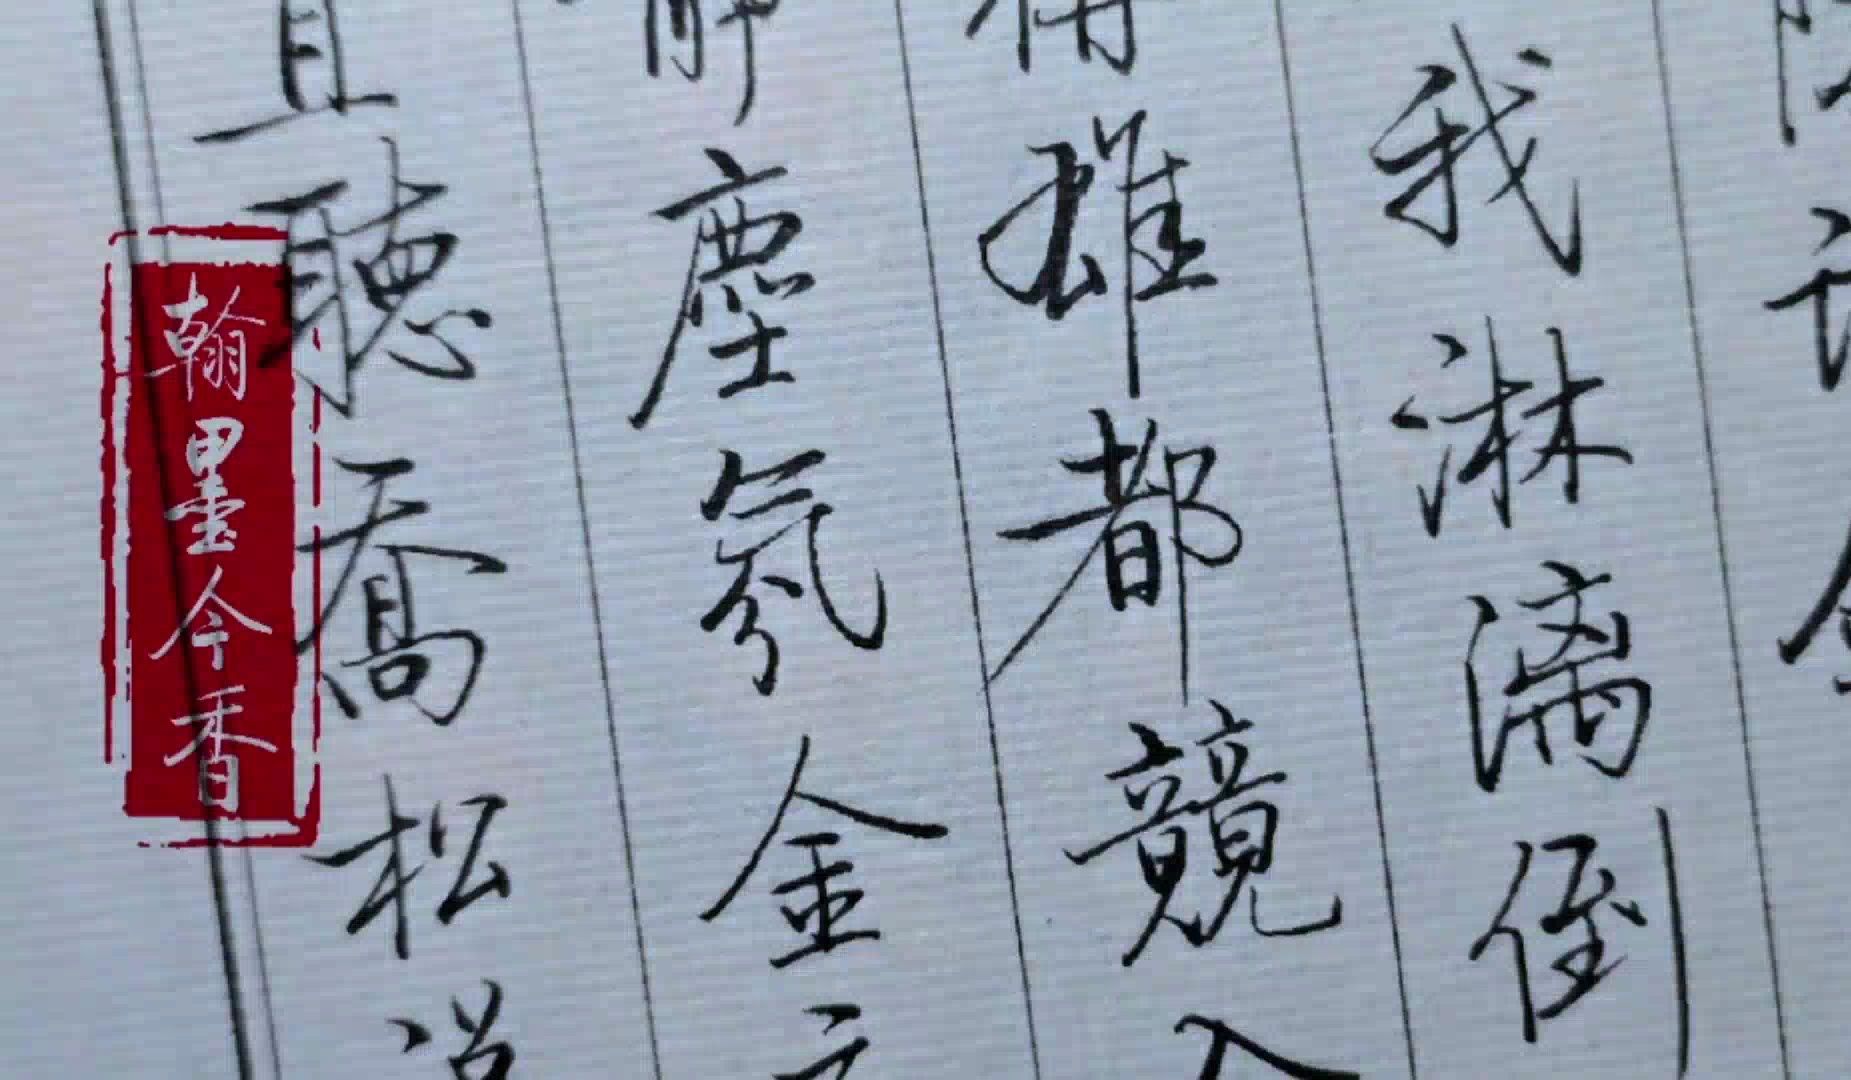 我淋漓倒
雄都競入
塵氛金
且聽喬松
翰墨今香